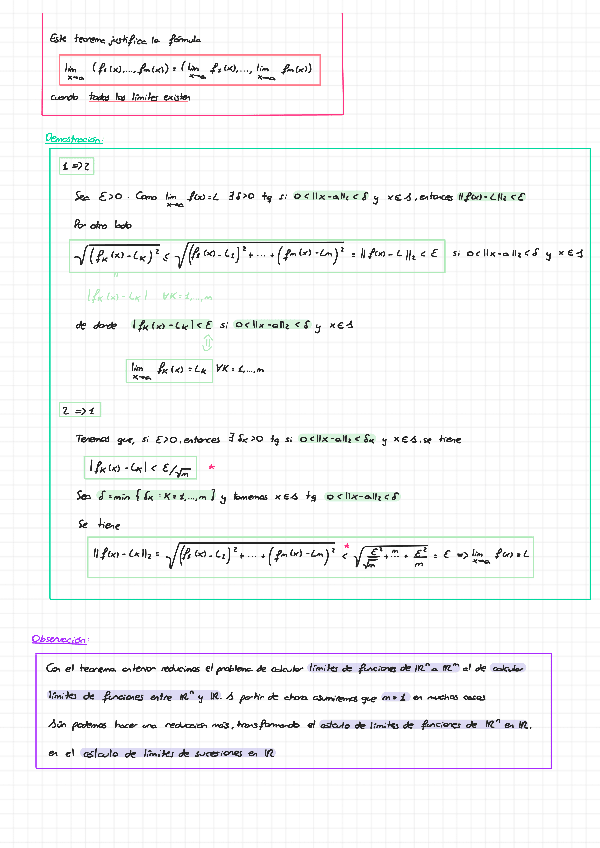 Este teorema justifica la fórmula
lim x→a (f1(x),...,fm(x)) = (lim x→a f1(x),..., lim x→a fm(x))
cuando todos los límites existen
Demostración:
1 ⇒ 2
Sea E>0. Como lim x→a f(x)=L ∃ δ>0 tq si 0<||x-a||2<δ y x∈A, entonces ||f(x)-L||2<E
Por otro lado
√(fK(x)-LK)² ≤ √(f1(x)-L1)²+...+(fm(x)-Lm)² = ||f(x)-L||2 < E si 0<||x-a||2<δ y x∈A
||
|fK(x)-LK| ∀K=1,...,m
de donde |fK(x)-LK|<E si 0<||x-a||2<δ y x∈A
⇕
lim x→a fK(x)=LK ∀K=1,...,m
2 ⇒ 1
Tenemos que, si E>0, entonces ∃ δK>0 tq si 0<||x-a||2<δK y x∈A, se tiene
|fK(x)-LK| < E/√m *
Sea δ=min{δK:K=1,...,m} y tomemos x∈A tq 0<||x-a||2<δ
Se tiene
||f(x)-LK||2 = √(f1(x)-L1)²+...+(fm(x)-Lm)² <* √E²/√m + m... + E²/m = E ⇒ lim x→a f(x)=L
Observación:
Con el teorema anterior reducimos el problema de calcular límites de funciones de ℝⁿ a ℝᵐ al de calcular
límites de funciones entre ℝⁿ y ℝ. A partir de ahora asumiremos que m=1 en muchos casos
Aún podemos hacer una reducción más, transformando el cálculo de límites de funciones de ℝⁿ en ℝ,
en el cálculo de límites de sucesiones en ℝ